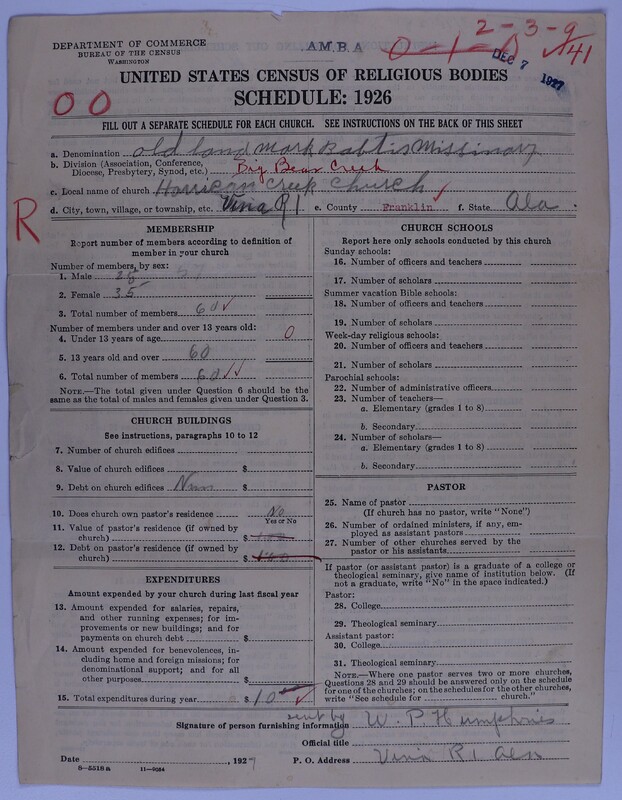 2-3-9
DEPARTMENT OF COMMERCE
BUREAU OF THE CENSUS
WASHINGTON
A.M.B.A
0-1-0
41
DEC 7 1927
UNITED STATES CENSUS OF RELIGIOUS BODIES
SCHEDULE: 1926
00
FILL OUT A SEPARATE SCHEDULE FOR EACH CHURCH. SEE INSTRUCTIONS ON THE BACK OF THIS SHEET
a. Denomination old land mark Babtis Missinary
b. Division (Association, Conference,
Diocese, Presbytery, Synod, etc.) Big Bear Creek
c. Local name of church Creek Church
d. City, town, village, or township, etc. Vina R1 e. County Franklin f. State Ala
R
MEMBERSHIP
Report number of members according to definition of
member in your church
Number of members, by sex:
1. Male 25
2. Female 35
3. Total number of members 60
Number of members under and over 13 years old:
4. Under 13 years of age 0
5. 13 years old and over 60
6. Total number of members 60
NOTE.—The total given under Question 6 should be the
same as the total of males and females given under Question 3.
CHURCH BUILDINGS
See instructions, paragraphs 10 to 12
7. Number of church edifices
8. Value of church edifices $
9. Debt on church edifices $
10. Does church own pastor's residence No
Yes or No
11. Value of pastor's residence (if owned by
church) $ 100
12. Debt on pastor's residence (if owned by
church) $ 100
EXPENDITURES
Amount expended by your church during last fiscal year
13. Amount expended for salaries, repairs,
and other running expenses; for im-
provements or new buildings; and for
payments on church debt $
14. Amount expended for benevolences, in-
cluding home and foreign missions; for
denominational support; and for all
other purposes $
15. Total expenditures during year $ 10
CHURCH SCHOOLS
Report here only schools conducted by this church
Sunday schools:
16. Number of officers and teachers
17. Number of scholars
Summer vacation Bible schools:
18. Number of officers and teachers
19. Number of scholars
Week-day religious schools:
20. Number of officers and teachers
21. Number of scholars
Parochial schools:
22. Number of administrative officers
23. Number of teachers—
a. Elementary (grades 1 to 8)
b. Secondary
24. Number of scholars—
a. Elementary (grades 1 to 8)
b. Secondary
PASTOR
25. Name of pastor
(If church has no pastor, write "None")
26. Number of ordained ministers, if any, em-
ployed as assistant pastors
27. Number of other churches served by the
pastor or his assistants
If pastor (or assistant pastor) is a graduate of a college or
theological seminary, give name of institution below. (If
not a graduate, write "No" in the space indicated.)
Pastor:
28. College
29. Theological seminary
Assistant pastor:
30. College
31. Theological seminary
NOTE.—Where one pastor serves two or more churches,
Questions 28 and 29 should be answered only on the schedule
for one of the churches; on the schedules for the other churches,
write "See schedule for church."
sent by W. P. Humphries
Signature of person furnishing information
Official title
Date , 1927 P. O. Address Vina R1 Ala
8—5518a 11—9084